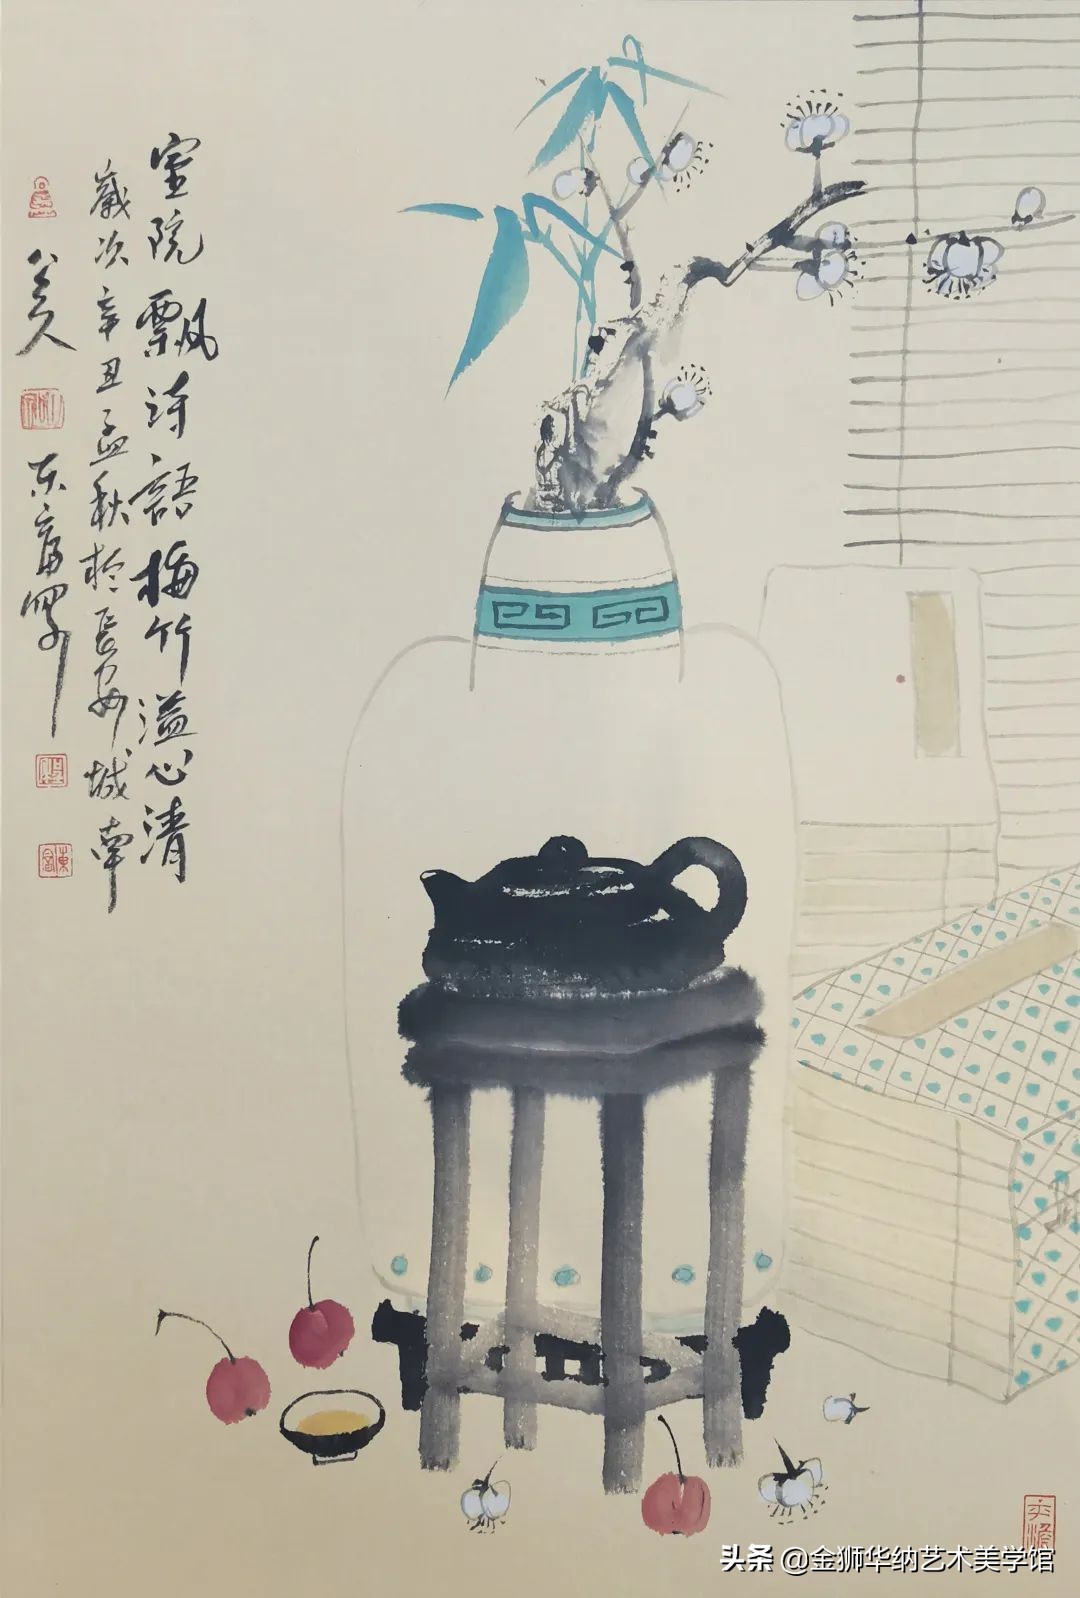 室院飘诗語梅竹溢心清
歲次辛丑孟秋於長安城南
东富写
東富
头条 @金狮华纳艺术美学馆